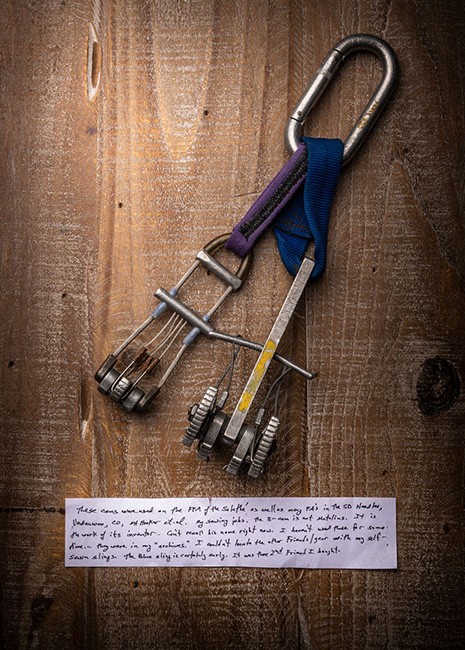 These cams were used on the FFA of the Salathé as well as many FA's in the SD Needles,
Vedauwoo, CO, et al. My sewing jobs. The 3-cam is not Metolius. It is
the work of its inventor. Can't recall his name right now. I haven't used these for some
time. They were in my "archives." I couldn't locate the other Friends/gear with my self-
sewn slings. The Blue sling is certainly early. It was the 2nd Friend I bought.